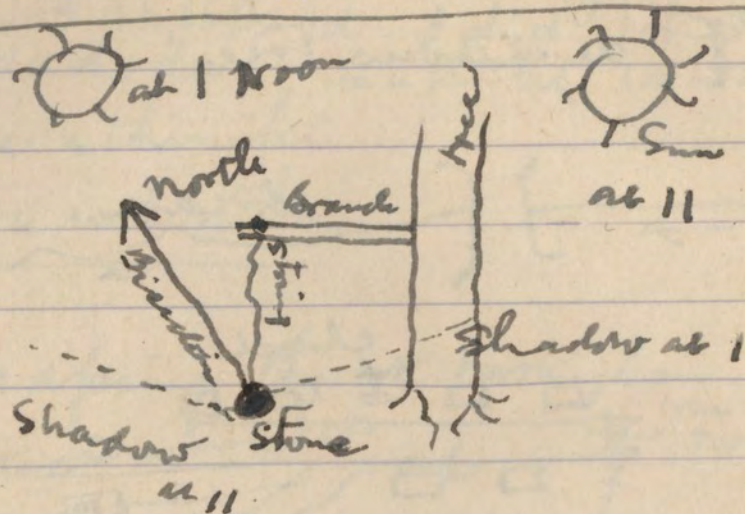 at 1 Noon
Sun
at 11
Tree
North
Branch
String
Bisection
Shadow at 1
Shadow
at 11
Stone